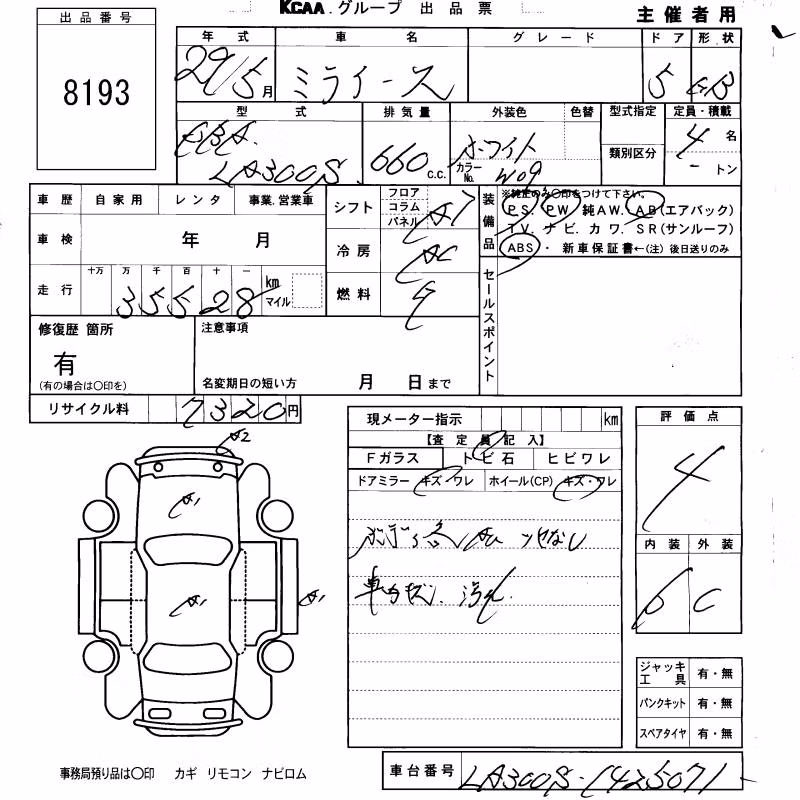 KCAA.グループ 出品票
主催者用
出品番号
8193
年式 車名 グレード ドア 形状
29/5月 ミライース 5
型式 排気量 外装色 色替 型式指定 定員・積載
EBA. 660 c.c. ホワイト 4 名
LA300S. カラーNo. W09 類別区分 - トン
車歴 自家用 レンタ 事業.営業車
シフト フロア コラム パネル AT
装備品 ※純正のみ〇印をつけて下さい。
P.S. P.W 純A.W. A.B(エアバック)
T.V. ナビ.カワ. S.R(サンルーフ)
ABS ・ 新車保証書←(注)後日送りのみ
車検 年 月
冷房 AC
走行 十万 万 千 百 十 一
35528 km マイル
燃料
セールスポイント
修復歴 箇所
有
(有の場合は〇印を)
注意事項
名変期日の短い方 月 日まで
リサイクル料 7320円
現メーター指示 km
【査定員記入】
Fガラス トビ石 ヒビワレ
ドアミラー キズ・ワレ ホイール(CP) キズ・ワレ
評価点
4
内装 外装
C
A2
A1
A1
A1
ジャッキ工具 有・無
パンクキット 有・無
スペアタイヤ 有・無
事務局預り品は〇印 カギ リモコン ナビロム
車台番号 LA300S-1425071